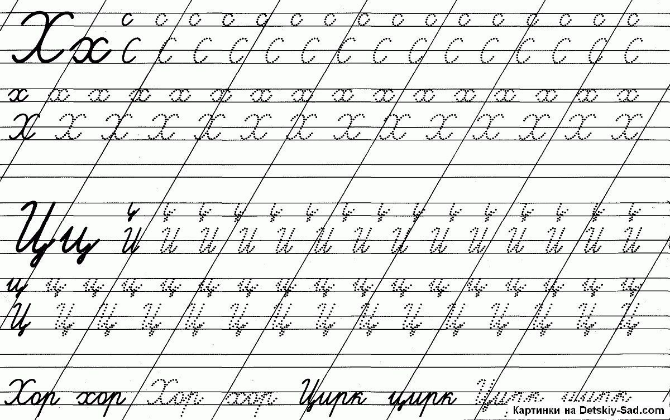 Х х с с с с с с с с с с с с с с с с
С С С С С С С С С С С С С С С С С
х х х х х х х х х х х х х х х х
Х Х Х Х Х Х Х Х Х Х Х Х Х Х
Ц ц
И И И И И И И И И И И И И И
ц ц ц ц ц ц ц ц ц ц ц ц ц ц ц ц ц
Ц Ц Ц Ц Ц Ц Ц Ц Ц Ц Ц Ц Ц Ц
Хор хор Хор хор Цирк цирк Цирк цирк
Картинки на Detskiy-Sad.com